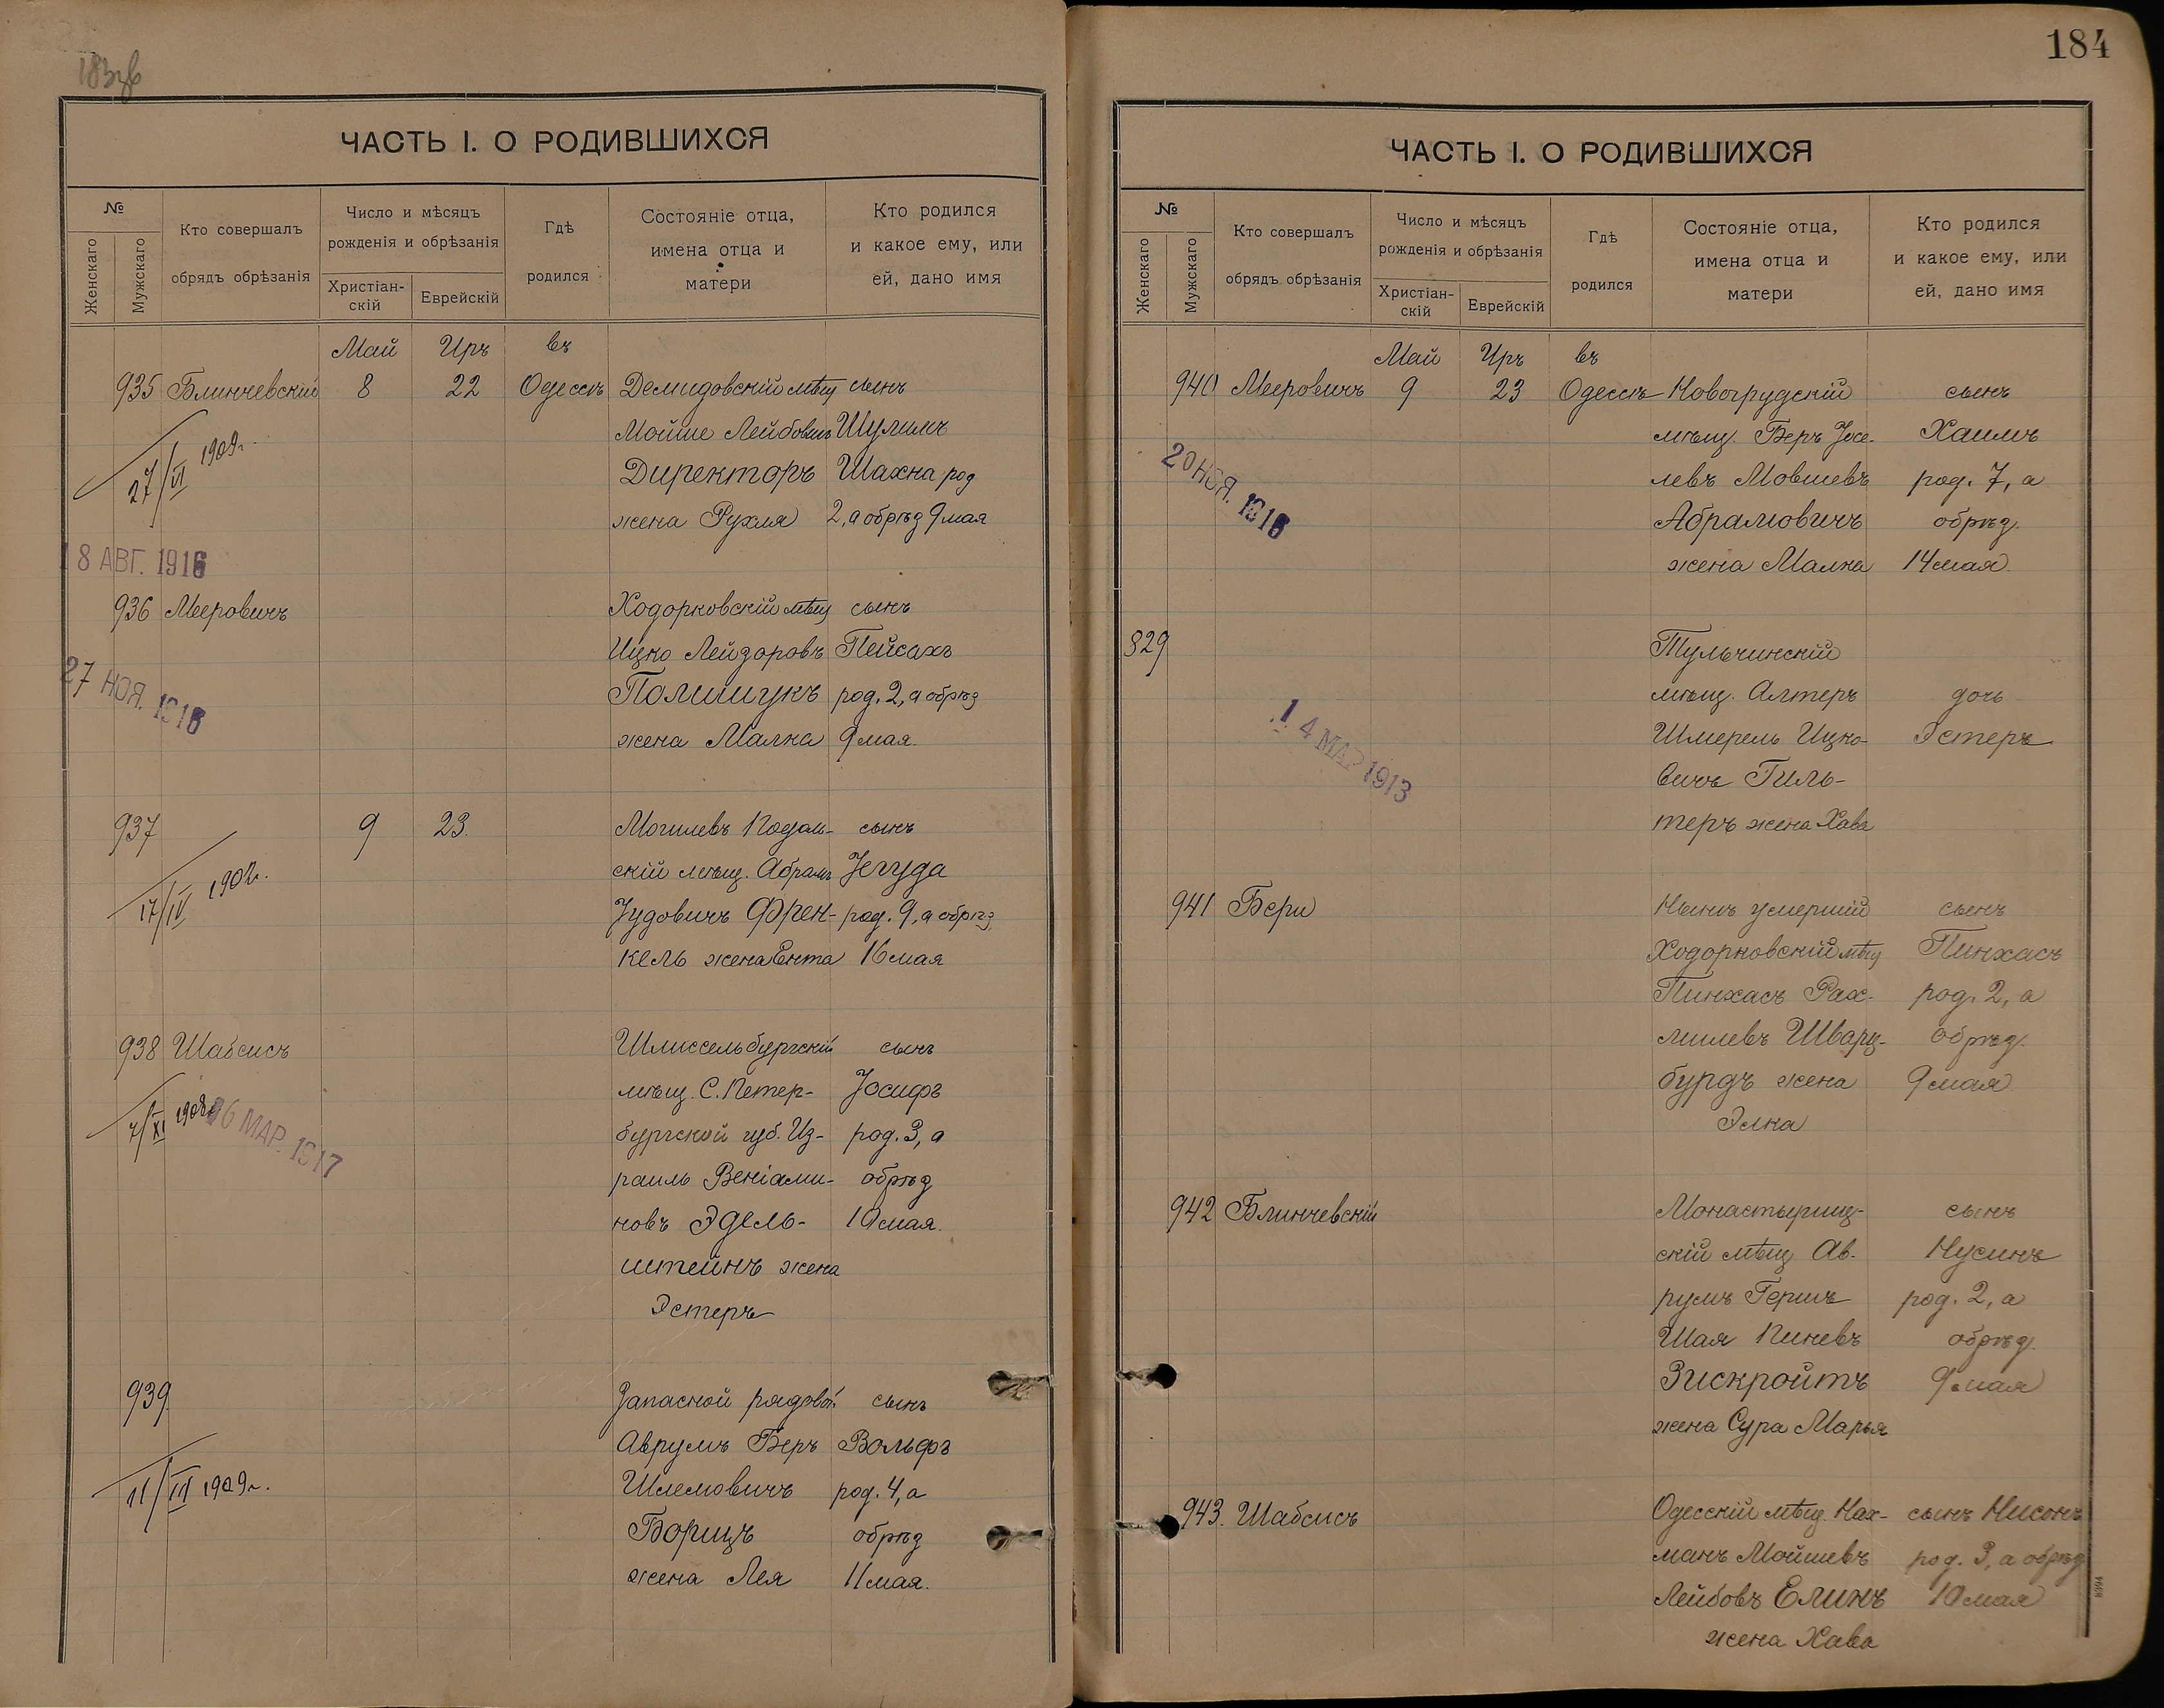 183 об
ЧАСТЬ I. О РОДИВШИХСЯ
№
Женскаго
Мужскаго
Кто совершалъ
обрядъ обрѣзанія
Число и мѣсяцъ
рожденія и обрѣзанія
Христіан-
скій
Еврейскій
Гдѣ
родился
Состояніе отца,
имена отца и
матери
Кто родился
и какое ему, или
ей, дано имя
Май Иръ въ
935 Блинчевскій 8 22 Одессѣ Демидовскій мѣщ сынъ
Мойше Лейбовичъ Шулимъ
Директоръ Шахна род
жена Рухля 2, а обрѣз 9 мая
27/VI 1909г.
18 АВГ. 1916
936 Мееровичъ Ходорковскій мѣщ сынъ
Ицко Лейзоровъ Пейсахъ
Полищукъ род. 2, а обрѣз
жена Малка 9 мая.
27 НОЯ. 1916
937 9 23. Могилевъ Подоль- сынъ
скій мѣщ. Абрамъ Іегуда
Іудовичъ Френ- род. 9, а обрѣз
кель жена Ента 16 мая
17/IV 190 г.
938 Шабсисъ Шлиссельбургскій сынъ
мѣщ. С. Петер- Іосифъ
бургской губ. Из- род. 3, а
раиль Веніами- обрѣз
новъ Эдель- 10 мая.
штейнъ жена
Эстеръ
7/XI 1908г
6 МАР. 1917
939 Запасной рядовой сынъ
Аврумъ Беръ Вольфъ
Шлемовичъ род. 4, а
Борищъ обрѣз
жена Лея 11 мая.
11/III 1909г.
184
ЧАСТЬ I. О РОДИВШИХСЯ
№
Женскаго
Мужскаго
Кто совершалъ
обрядъ обрѣзанія
Число и мѣсяцъ
рожденія и обрѣзанія
Христіан-
скій
Еврейскій
Гдѣ
родился
Состояніе отца,
имена отца и
матери
Кто родился
и какое ему, или
ей, дано имя
Май Иръ въ
940 Мееровичъ 9 23 Одессѣ Новогрудскій сынъ
мѣщ. Беръ Іосе- Хаимъ
левъ Мовшевъ род. 7, а
Абрамовичъ обрѣз.
жена Малка 14 мая.
20 НОЯ. 1916
829 Тульчинскій
мѣщ. Алтеръ дочь
Шмерель Ицко- Эстеръ
вичъ Гиль-
теръ жена Хава
14 МАР 1913
941 Бери Нынѣ умершій сынъ
Ходорковскій мѣщ Пинхасъ
Пинхасъ Рах- род. 2, а
милевъ Шварц- обрѣз.
бурдъ жена 9 мая
Элка
942 Блинчевскій Монастырищ- сынъ
скій мѣщ Ав- Нусинъ
румъ Гершъ род. 2, а
Шая Пиневъ обрѣз.
Зискройтъ 9 мая
жена Сура Марья
943. Шабсисъ Одесскій мѣщ. Нах- сынъ Нисонъ
манъ Мойшевъ род. 3, а обрѣз
Лейбовъ Елинъ 10 мая
жена Хава